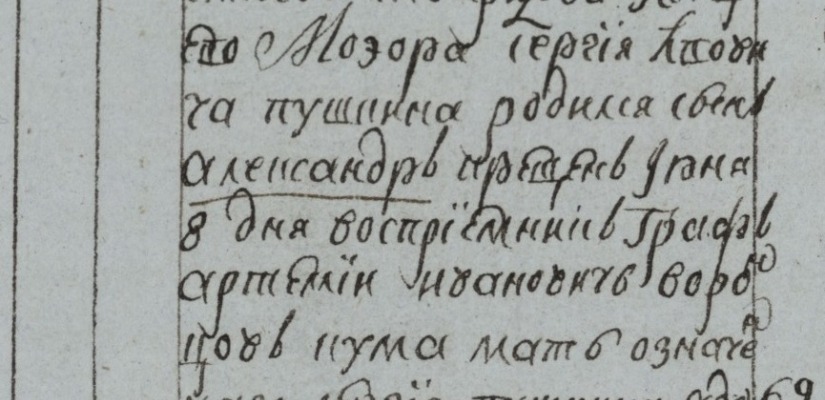 его Моэора Сергїя Львови
ча пушкина родился сынъ
александръ крещенъ Iюня
8 дня воспрїемникъ Графъ
артемїи ивановичь ворон
цовъ кума мать означе